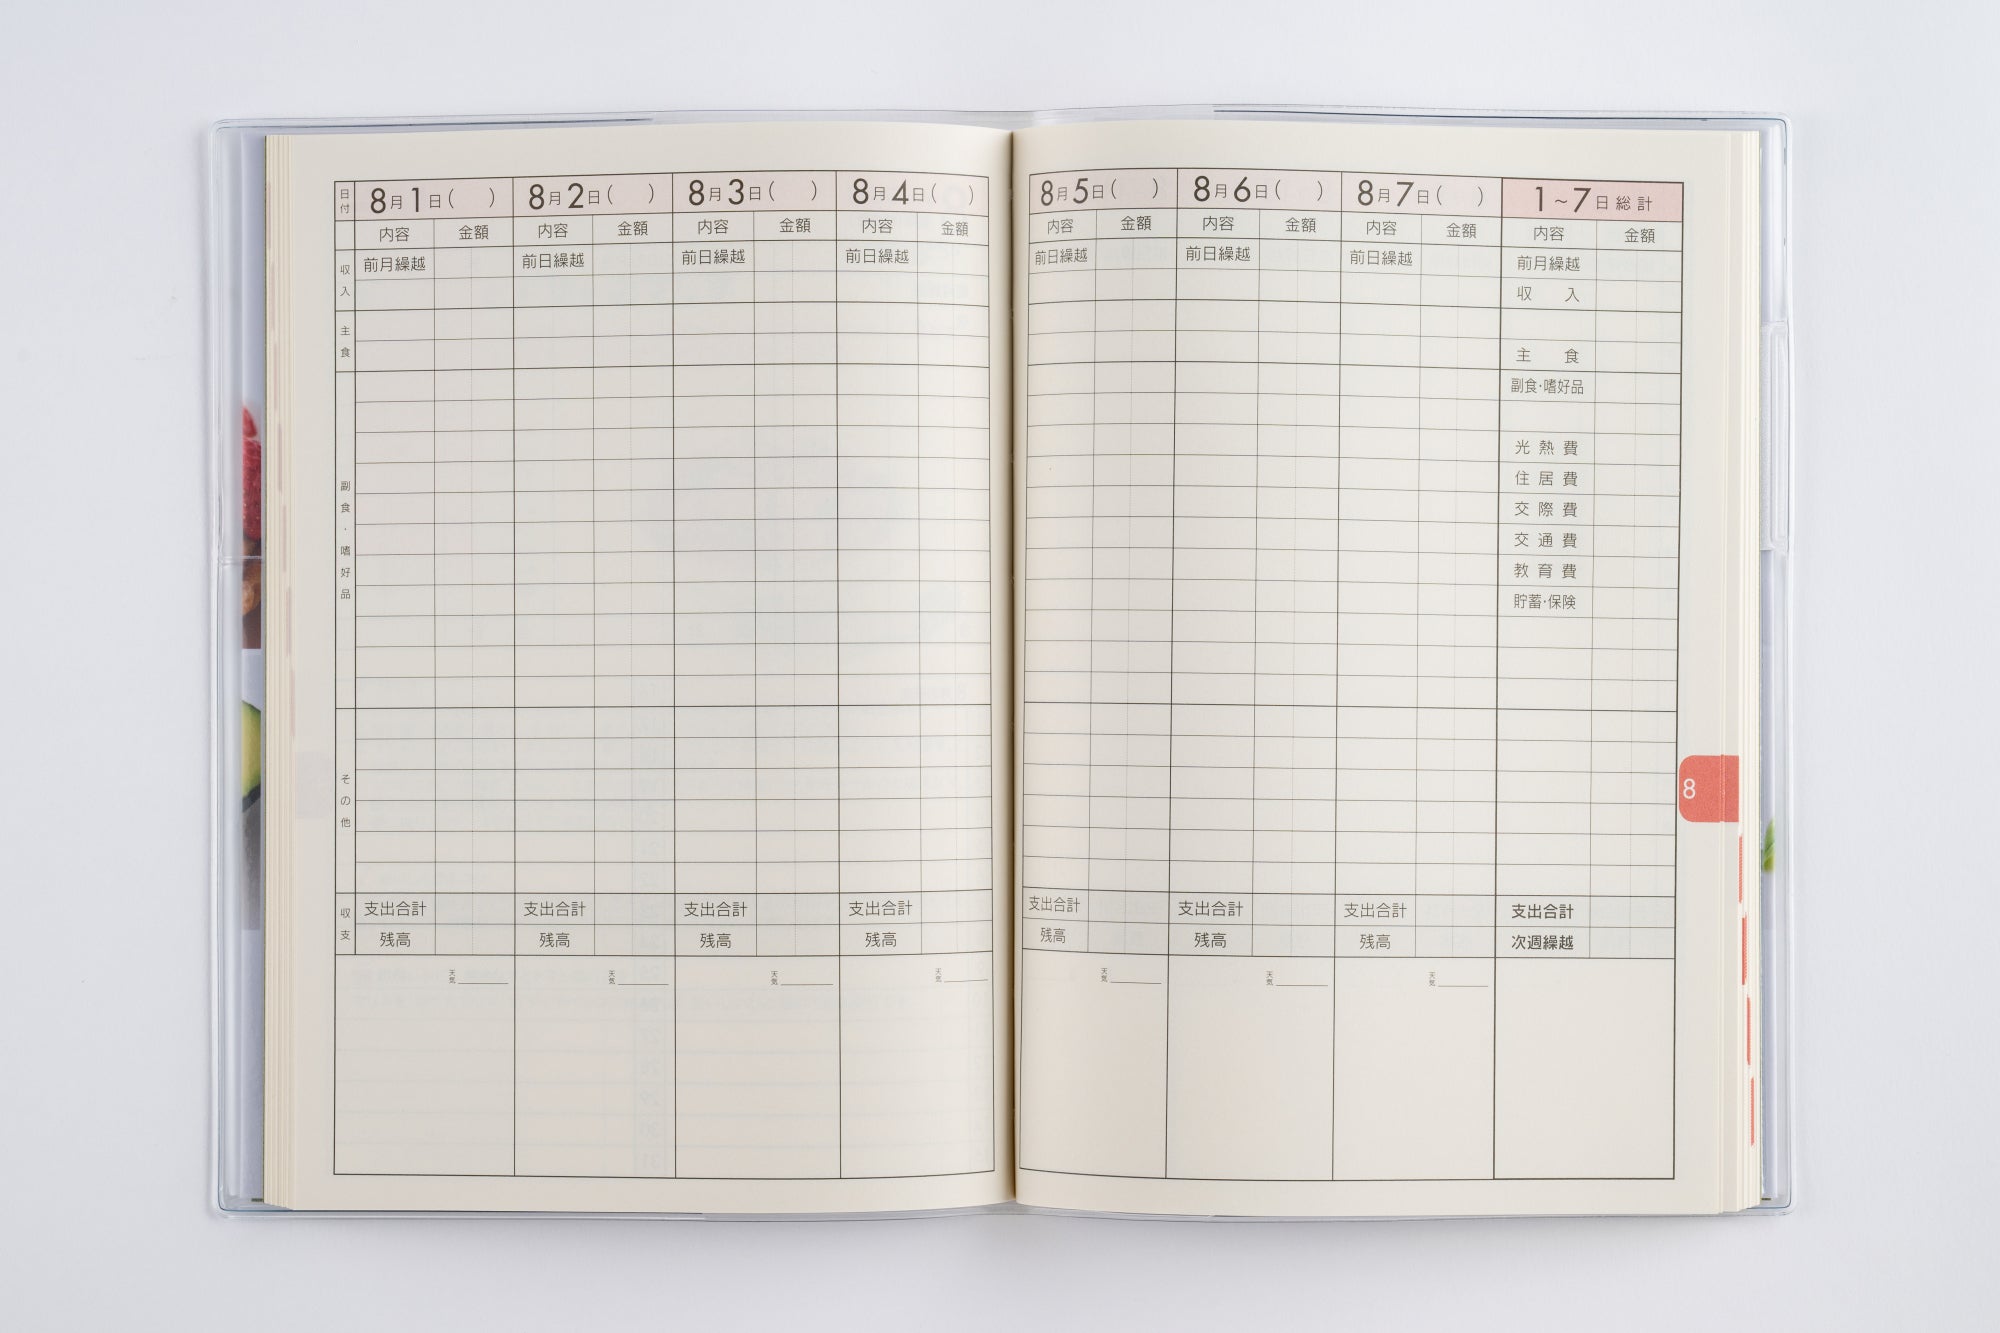 日付 8月1日( ) 8月2日( ) 8月3日( ) 8月4日( ) 8月5日( ) 8月6日( ) 8月7日( ) 1~7日総計
内容 金額 内容 金額 内容 金額 内容 金額 内容 金額 内容 金額 内容 金額 内容 金額
収入 前月繰越 前日繰越 前日繰越 前日繰越 前日繰越 前日繰越 前日繰越 前月繰越
収 入
主食
主 食
副食・嗜好品
副食・嗜好品
光熱費
住居費
交際費
交通費
教育費
貯蓄・保険
その他
8
収支 支出合計 支出合計 支出合計 支出合計 支出合計 支出合計 支出合計 支出合計
残高 残高 残高 残高 残高 残高 残高 次週繰越
天気 天気 天気 天気 天気 天気 天気